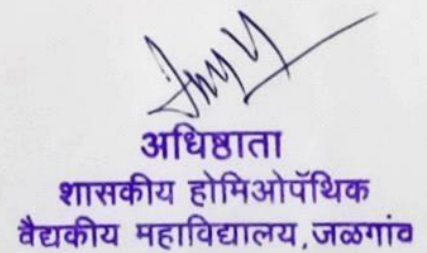 अधिष्ठाता
शासकीय होमिओपॅथिक
वैद्यकीय महाविद्यालय,जळगांव